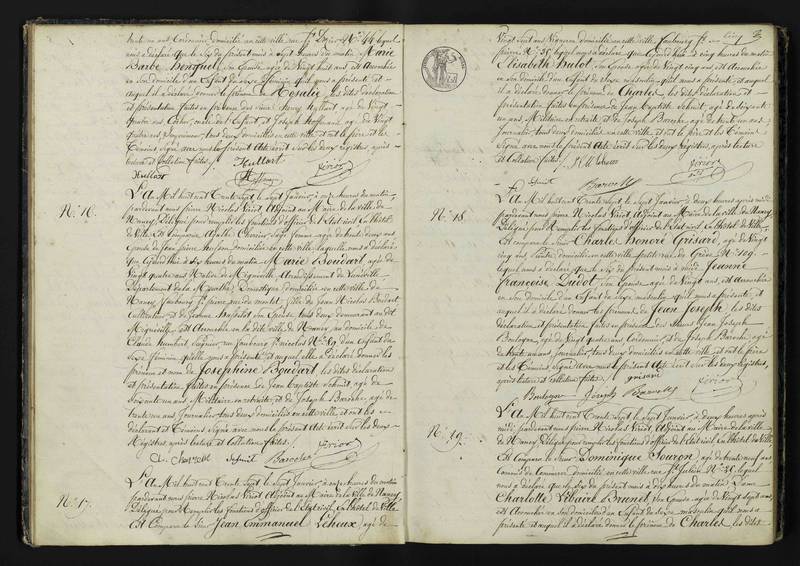 trente un ans Cordonnier, domicilié en cette ville rue St Dizier N° 44 lequel
nous a déclaré que le six du présent mois à sept heures du matin Marie
Barbe Henquel, son Epouse agée de Vingt huit ans est Accouchée
en son domicile d'un Enfant du sexe féminin qu'il nous a présenté et
auquel il a déclaré donner le prénom de Rosalie, les dites déclaration
et présentation faites en présence des sieurs Henry hullart agé de Vingt
quatre ans Cocher, oncle de l'Enfant et Joseph hoffmann agé de Vingt
quatre ans, tous deux domiciliés en cette ville et ont le père et les
témoins Signé avec nous le présent Acte écrit sur les deux registres, après
lecture et Collation faites.
Hullart
N° 16.
L'An Mil huit cent Trente sept le Sept Janvier à onze heures du matin,
pardevant nous pierre Nicolas Vériot, Adjoint au Maire de la ville de
Nancy, Délégué pour remplir les fonctions d'officier de l'Etat civil en l'hôtel de
Ville, Est Comparue Agathe Chevrier Sage femme agée de trente deux ans
domiciliée en cette ville laquelle nous a déclaré
que aujourd'hui à dix heures du matin Marie Boudart, agée de
Vingt quatre ans Native de Mignéville Arrondissement de Lunéville
Département de la Meurthe, Domestique domiciliée en cette ville de
Nancy faubourg St pierre fille de Jean Nicolas Boudart
Cultivateur et de son Epouse tous deux demeurant au dit
Mignéville, est Accouchée en la dite ville de Nancy, au domicile de
Claude humbert faubourg St nicolas N° 89 d'un enfant du
Sexe féminin qu'elle nous a présenté et auquel elle a déclaré donner les
prénom et nom de Josephine Boudart les dites déclaration
et présentation faites en présence de Jean Baptiste Schmit, agé de
Soixante un ans Militaire en retraite et de Joseph Baroche agé de
trente un ans Journalier tous deux domiciliés en cette ville, et ont les
déclarant et témoins Signé avec nous le présent Acte écrit Sur les deux
Registres, après lecture et Collation faites.
N° 17.
L'An Mil huit cent Trente Sept le Sept Janvier, à onze heures du matin
pardevant nous pierre Nicolas Vériot Adjoint au Maire de la Ville de Nancy
Délégué pour Remplir les fonctions d'officier de l'Etat civil en l'hôtel de Ville
Est Comparu le Sieur Jean Emmanuel Leheux agé de
Vingt Sept ans Vigneron domicilié en cette ville, faubourg St
pierre N° 35, lequel nous a déclaré que aujourd'hui à cinq heures du matin
Elisabeth Hulot son Epouse agée de Vingt cinq ans est Accouchée
en son domicile d'un Enfant du Sexe masculin qu'il nous a présenté et auquel
il a déclaré donner le prénom de Charles, les dites déclaration et
présentation faites en présence de Jean Baptiste Schmit, agé de soixante
un ans Militaire en retraite et de Joseph Baroche, agé de trente un ans
Journalier, tous deux domiciliés en cette ville, et ont le père et les témoins
Signé avec nous le présent Acte écrit Sur les deux registres, après lecture
et Collation faites.
N° 18.
L'An Mil huit cent Trente Sept le Sept Janvier à deux heures après midi
pardevant nous pierre Nicolas Vériot Adjoint au Maire de la ville de Nancy,
Délégué pour Remplir les fonctions d'officier de l'Etat civil en l'hôtel de Ville,
Est Comparu le Sieur Charles Honoré Grisard, agé de Vingt
cinq ans, domicilié en cette ville petite rue de Grève N° 109.
lequel nous a déclaré que le six du présent mois à midi Jeanne
Françoise Ludot, Son Epouse agée de Vingt ans, est Accouchée
en son domicile d'un Enfant du Sexe masculin, qu'il nous a présenté, et
auquel il a déclaré donner les prénoms de Jean Joseph, les dites
déclaration et présentation faites en présence des Sieurs Jean Joseph
Boulogne, agé de Vingt quatre ans Cordonnier et de Joseph Baroche agé
de trente un ans Journalier, tous deux domiciliés en cette ville et ont le père
et les témoins Signé avec nous le présent Acte écrit Sur les deux registres,
après lecture et collation faites.
grisard
Boulogne
N° 19.
L'An Mil huit cent Trente Sept le Sept Janvier à deux heures après
midi, pardevant nous Pierre Nicolas Vériot Adjoint au Maire de la ville
de Nancy, Délégué pour remplir les fonctions d'officier de l'Etat civil en l'hôtel de Ville,
Est Comparu le Sieur Dominique Touron, agé de trente neuf ans
Commis de Commerce domicilié en cette ville, rue St Julien N° 25 lequel
nous a déclaré que le six du présent mois à dix heures du matin Dame
Charlotte Brunet Son Epouse agée de Vingt sept ans,
est Accouchée en son domicile d'un Enfant du Sexe masculin qu'il nous a
présenté et auquel il a déclaré donner le prénom de Charles, les dites